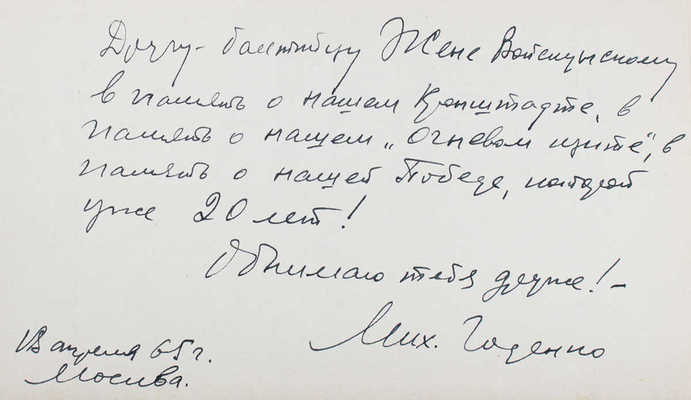 Другу-балтийцу Жене Войскунскому
в память о нашем Кронштадте, в
память о нашем „Огневом щите", в
память о нашей Победе, которой
уже 20 лет!
Обнимаю тебя друже! –
Мих. Годенко
18 апреля 65 г.
Москва.